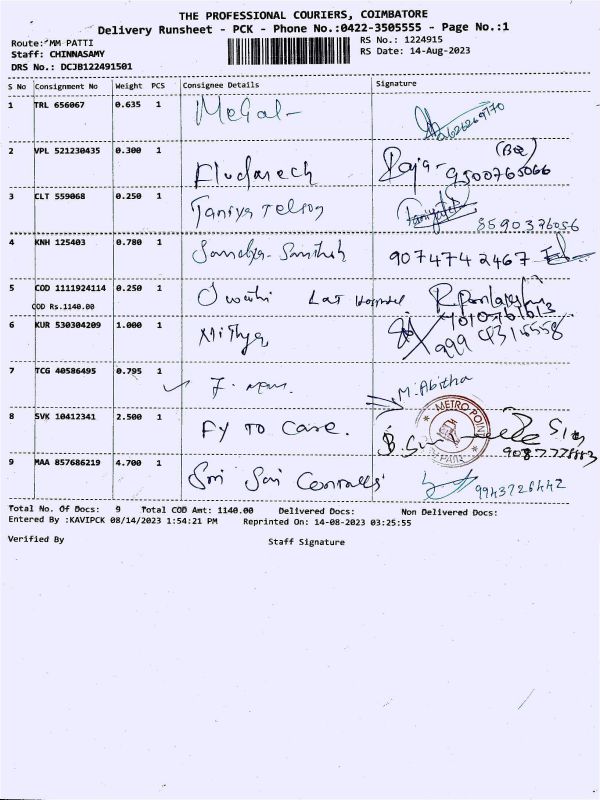 THE PROFESSIONAL COURIERS, COIMBATORE
Delivery Runsheet - PCK - Phone No.:0422-3505555 - Page No.:1
Route: MM PATTI
RS No.: 1224915
Staff: CHINNASAMY
RS Date: 14-Aug-2023
DRS No.: DCJB122491501
S No Consignment No Weight PCS Consignee Details Signature
1 TRL 656067 0.635 1 Megal-
2 VPL 521230435 0.300 1 Raja- (BQ) 9500765066
3 CLT 559068 0.250 1 Taniya Telson 8590376056
4 KNH 125403 0.780 1 Sandya Santhosh 9074742467
5 COD 1111924114 0.250 1 Swathi Hospital
COD Rs.1140.00
6 KUR 530304209 1.000 1 Nithya
7 TCG 40586495 0.795 1 M. Abitha
8 SVK 10412341 2.500 1 Fy To Care. METRO POINT
9 MAA 857686219 4.700 1 Sri Sai 9943726442
Total No. Of Docs: 9 Total COD Amt: 1140.00 Delivered Docs: Non Delivered Docs:
Entered By :KAVIPCK 08/14/2023 1:54:21 PM Reprinted On: 14-08-2023 03:25:55
Verified By Staff Signature